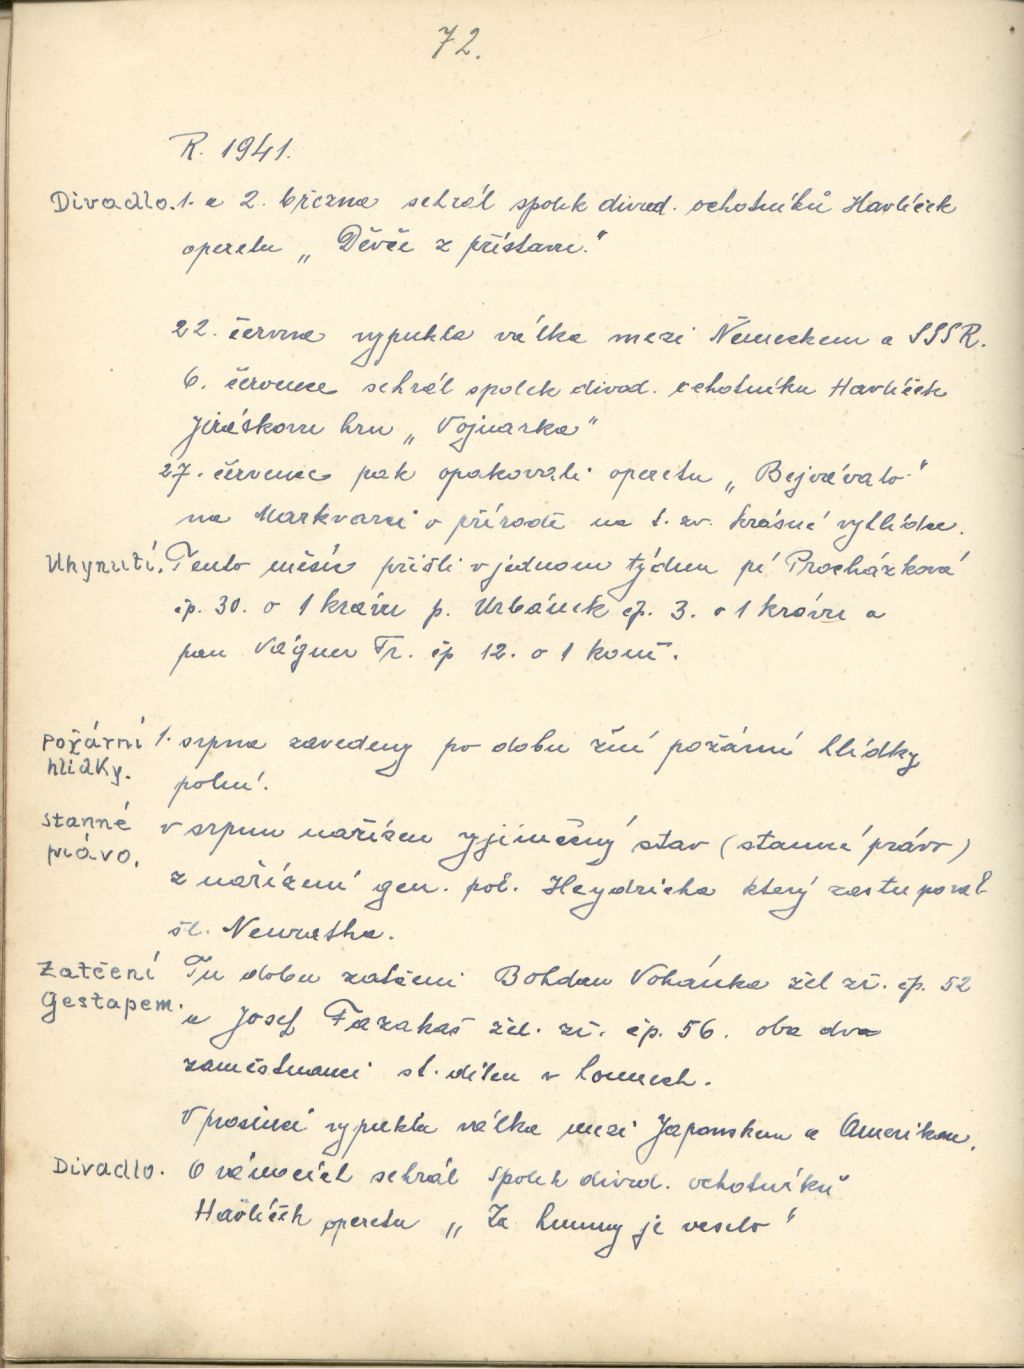 72.
R. 1941.
Divadlo. 1. a 2. března sehrál spolek divad. ochotníků Havlíček
operetu „Děvče z přístavu."
22. června vypukla válka mezi Německem a SSSR.
6. července sehrál spolek divad. ochotníku Havlíček
Jiráskovu hru „Vojnarka"
27. července pak opakovali operetu „Bejvávalo"
na Markvarci v přírodě na t. zv. krásné vyhlídce.
Uhynutí. Tento měsíc přišli v jednom týdnu pí Procházková
čp. 30. o 1 krávu p. Urbánek čp. 3. o 1 krávu a
pan Vágner Fr. čp 12. o 1 koně.
Požární 1. srpna zavedeny po dobu žní požární hlídky
hlídky.
polní.
Stanné v srpnu nařízen vyjímečný stav (stanné právo)
právo.
z nařízení gen. pol. Heydricha který zastupoval
Neuratha.
Zatčení Tu dobu zatčeni Bohdan Vohánka žel zř. čp. 52
Gestapem. a Josef Fazakaš žel. zř. čp. 56. oba dva
zaměstnanci st. dílen v Lounech.
V prosinci vypukla válka mezi Japonskem a Amerikou.
Divadlo. O vánocích sehrál spolek divad. ochotníků
Havlíček operetu „Za humny je veselo"